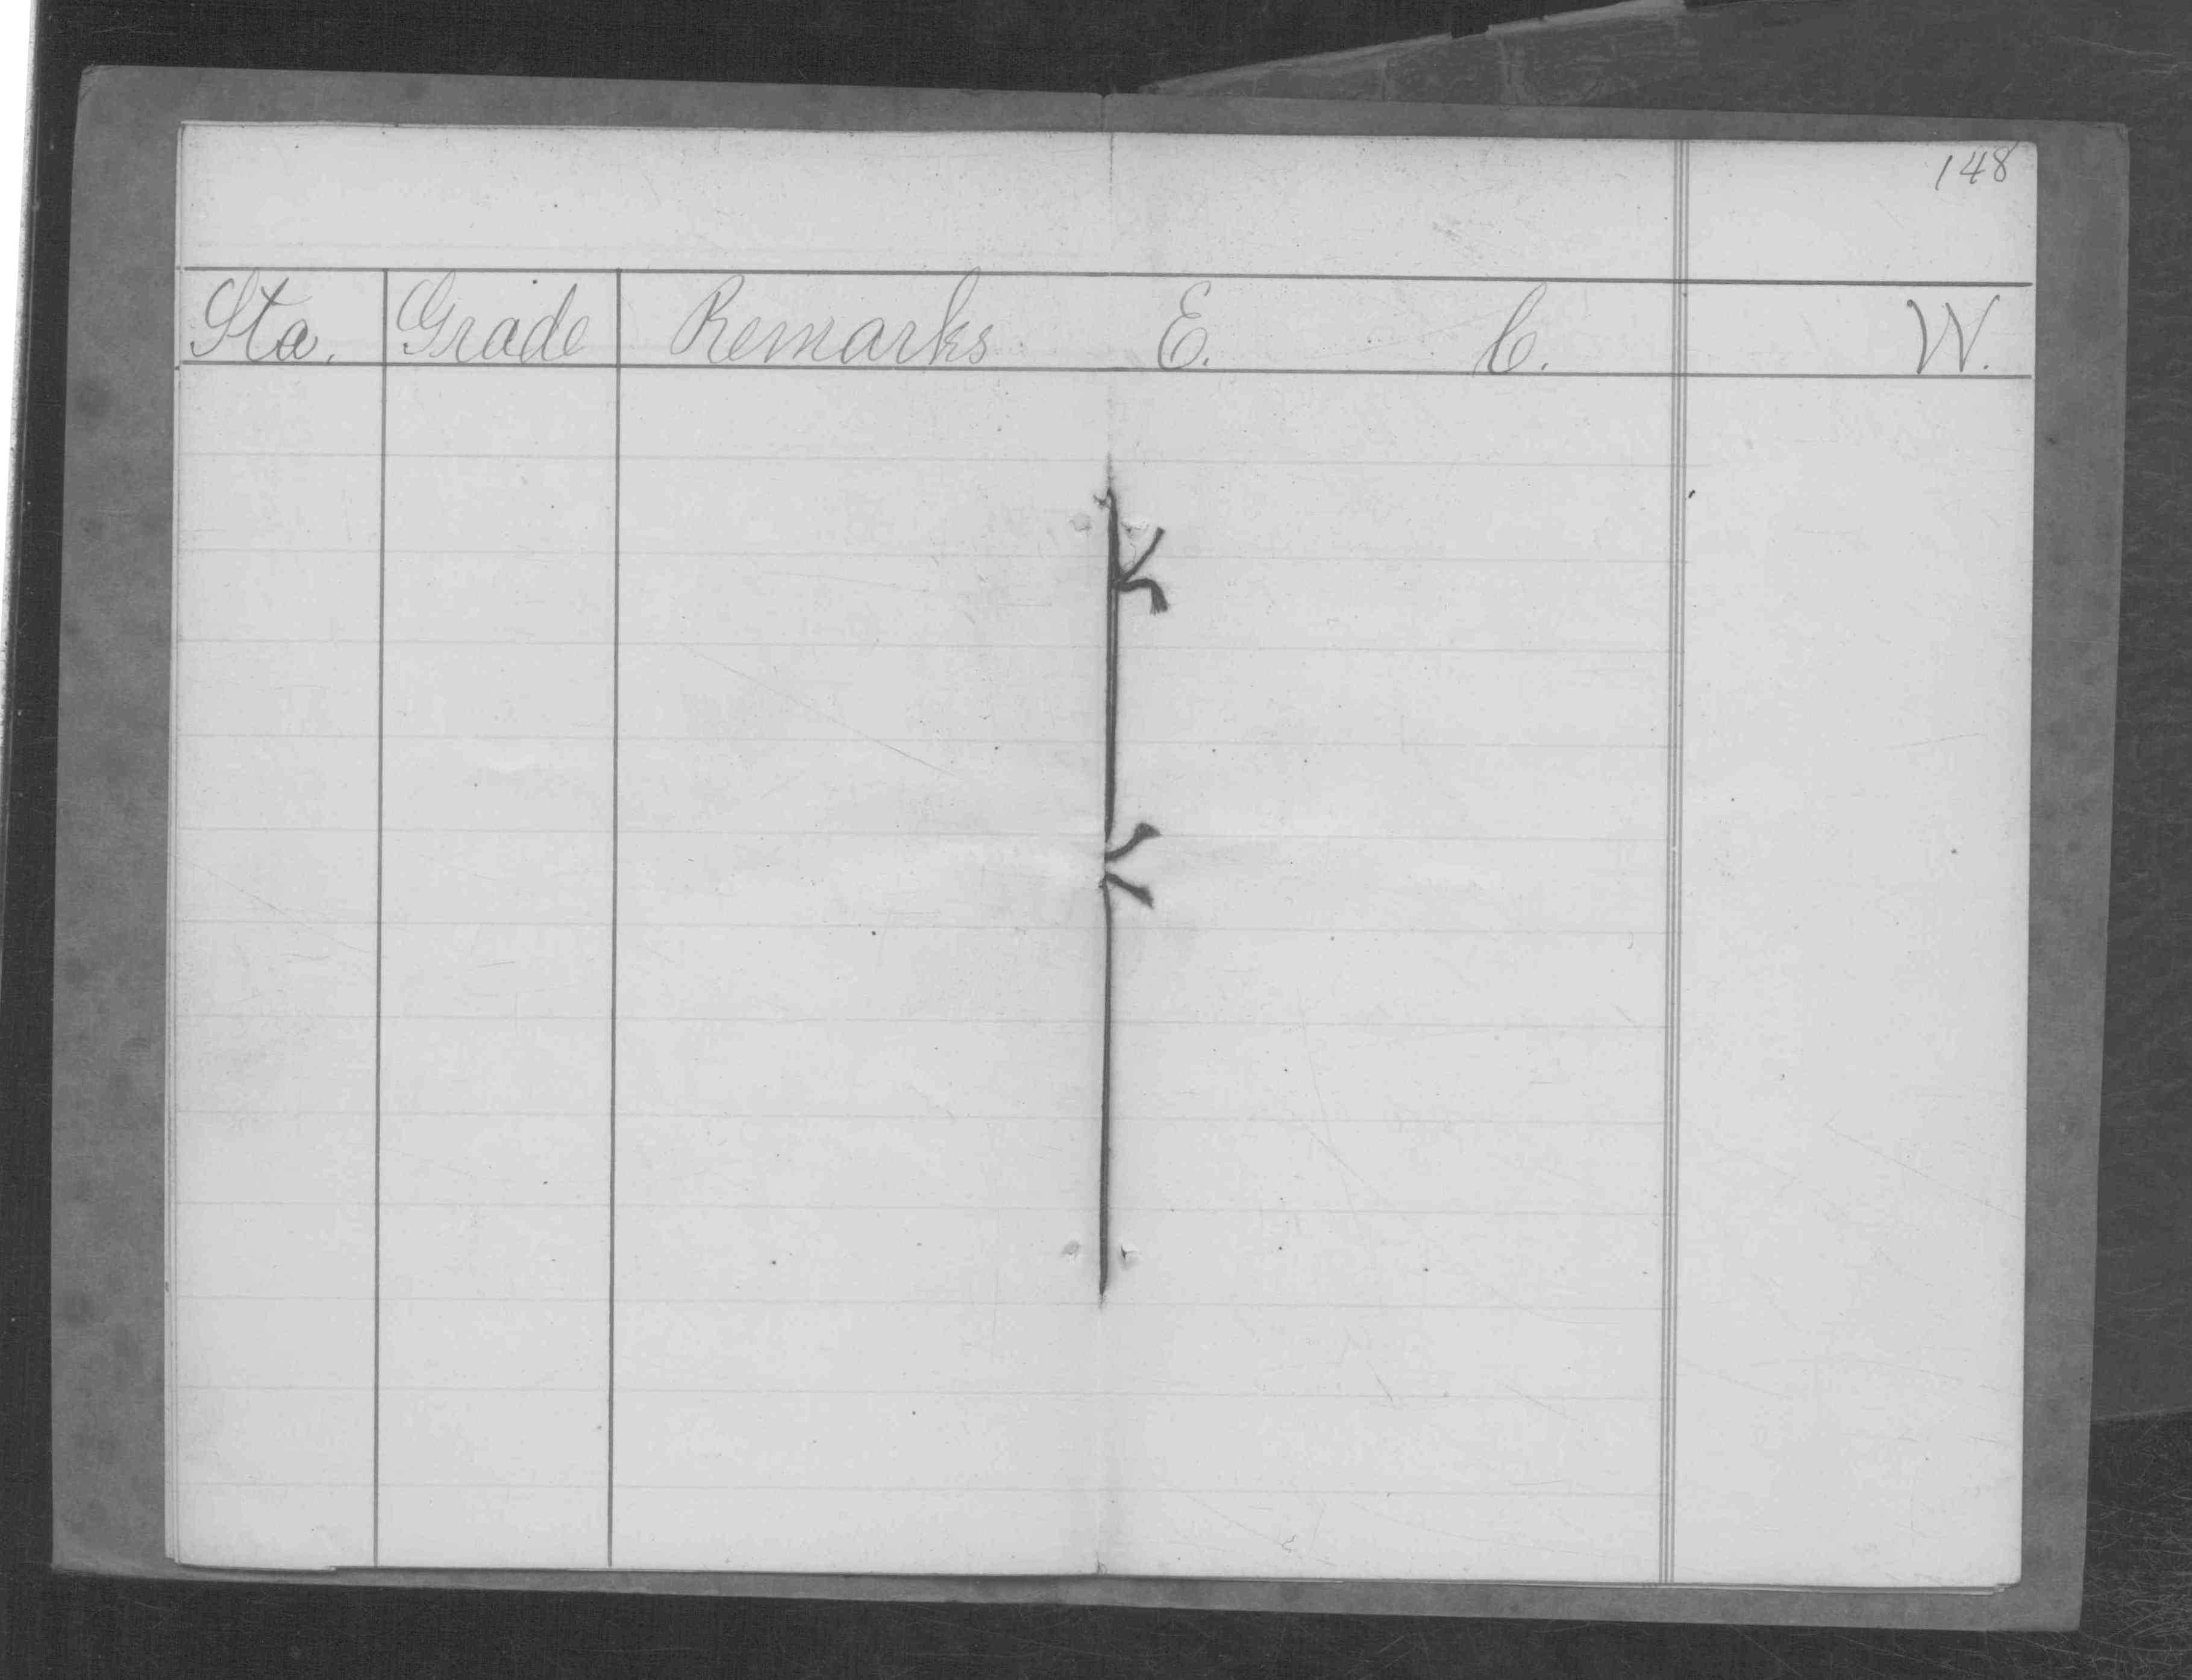 148
Sta. Grade Remarks E. C. W.